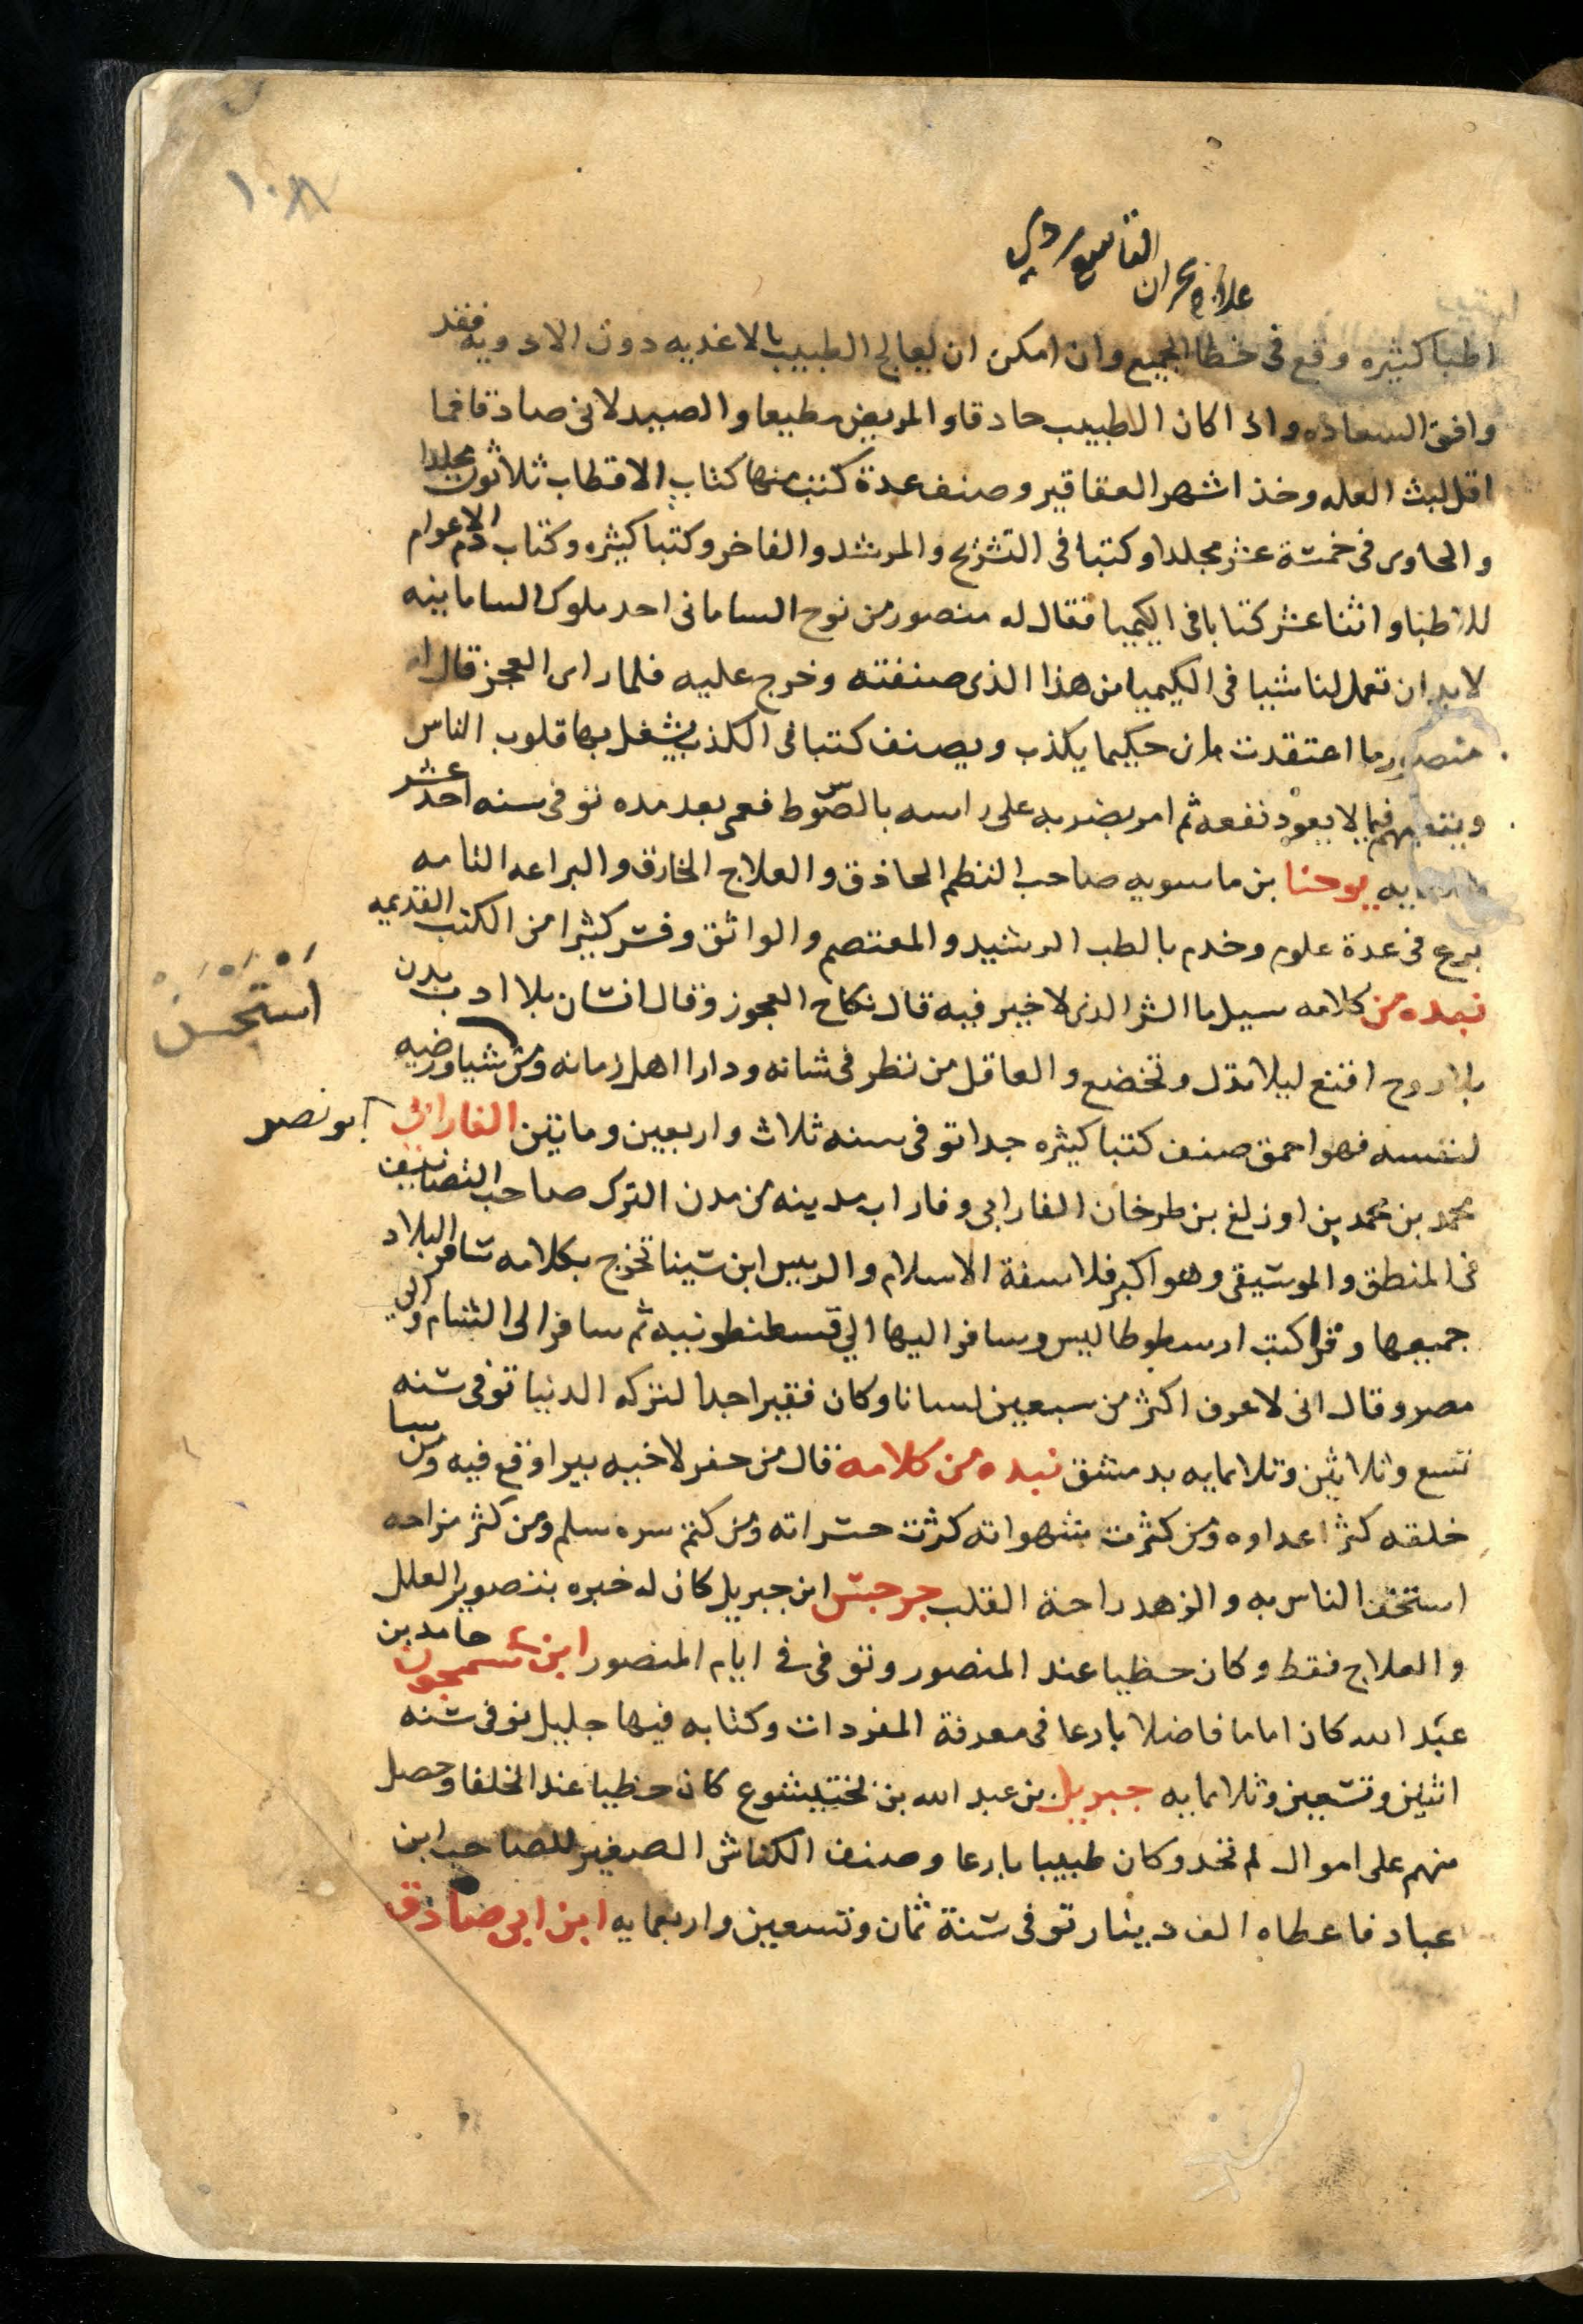 ١٠٨
اطبا كثيره وقع فى خطا الجميع وان امكن ان يعالج الطبيب بالاغديه دون الادويه فقد
وافق السعاده وادا كان الاطبيب حادقا والمريض مطيعا والصيدلانى صادقا فما
اقل لبث العله وخذ اشهر العقاقير وصنف عدة كتب منها كتاب الاقطاب ثلاثون مجلدا
والحاوى فى خمسة عشر مجلدا وكتبا فى التشريح والمرشد والفاخر وكتبا كثيره وكتاب دم الاعوام
للاطبا واثنا عشر كتابا فى الكيميا فقال له منصور من نوح السامانى احد ملوك السامانيه
لابد ان تعمل لنا شيا فى الكيميا من هذا الذى صنفته وخرج عليه فلما راى العجز قال له
منصور ما اعتقدت ان حكيما يكذب ويصنف كتبا فى الكذب يشغل بها قلوب الناس
ويتعبهم فيما لا يعود نفعه ثم امر بضربه على راسه بالصوط فعمى بعد مده توفى سنه احد عشر
وثلثمايه يوحنا بن ماسويه صاحب النظم الحاذق والعلاج الخارق والبراعه التامه
برع فى عدة علوم وخدم بالطب الرشيد والمعتصم والواثق وفسر كثيرا من الكتب القديمه
نبده من كلامه سيل ما الشر الدى لا خير فيه قال نكاح العجوز وقال انسان بلا ادب بدن
بلا روح اقنع ليلا تدل وتخضع والعاقل من نظر فى شانه ودارا اهل زمانه ومن شيا ورضيه
استحسن
لنفسه فهو احمق صنف كتبا كثيره جدا توفى سنه ثلاث واربعين وماتين الفارابى ابو نصر
محمد بن محمد بن اوزلغ بن طرخان الفارابى وفاراب مدينه من مدن الترك صاحب التصانيف
فى المنطق والموسيقى وهو اكبر فلاسفة الاسلام والرييس ابن سينا تخرج بكلامه سافر البلاد
جميعها وقرا كتب ارسطوطاليس وسافر اليها الي قسطنطونيه ثم سافر الى الشام والي
مصر وقال انى لاعرف اكثر من سبعين لسانا وكان فقيرا جدا لتركه الدنيا توفى سنه
تسع وثلاثين وثلاثمايه بدمشق نبده من كلامه قال من حفر لاخيه بيرا وقع فيه ومن سا
خلقه كثر اعداوه ومن كثرت شهواته كثرت حسراته ومن كتم سره سلم ومن كثر مزاحه
استخف الناس به والزهد راحة القلب جرجس ابن جبريل كان له خبره بتصوير العلل
والعلاج فقط وكان حظيا عند المنصور وتوفى فى ايام المنصور ابن سمجون حامد بن
عبد الله كان اماما فاضلا بارعا فى معرفة المفردات وكتابه فيها جليل توفى سنه
اثنين وتسعين وثلاثمايه جبريل بن عبد الله بن بختيشوع كان حظيا عند الخلفا وحصل
منهم على اموال لم تحد وكان طبيبا بارعا وصنف الكناش الصغير للصاحب ابن
عباد فاعطاه الف دينار توفى سنة ثمان وتسعين واربعمايه ابن ابى صادق